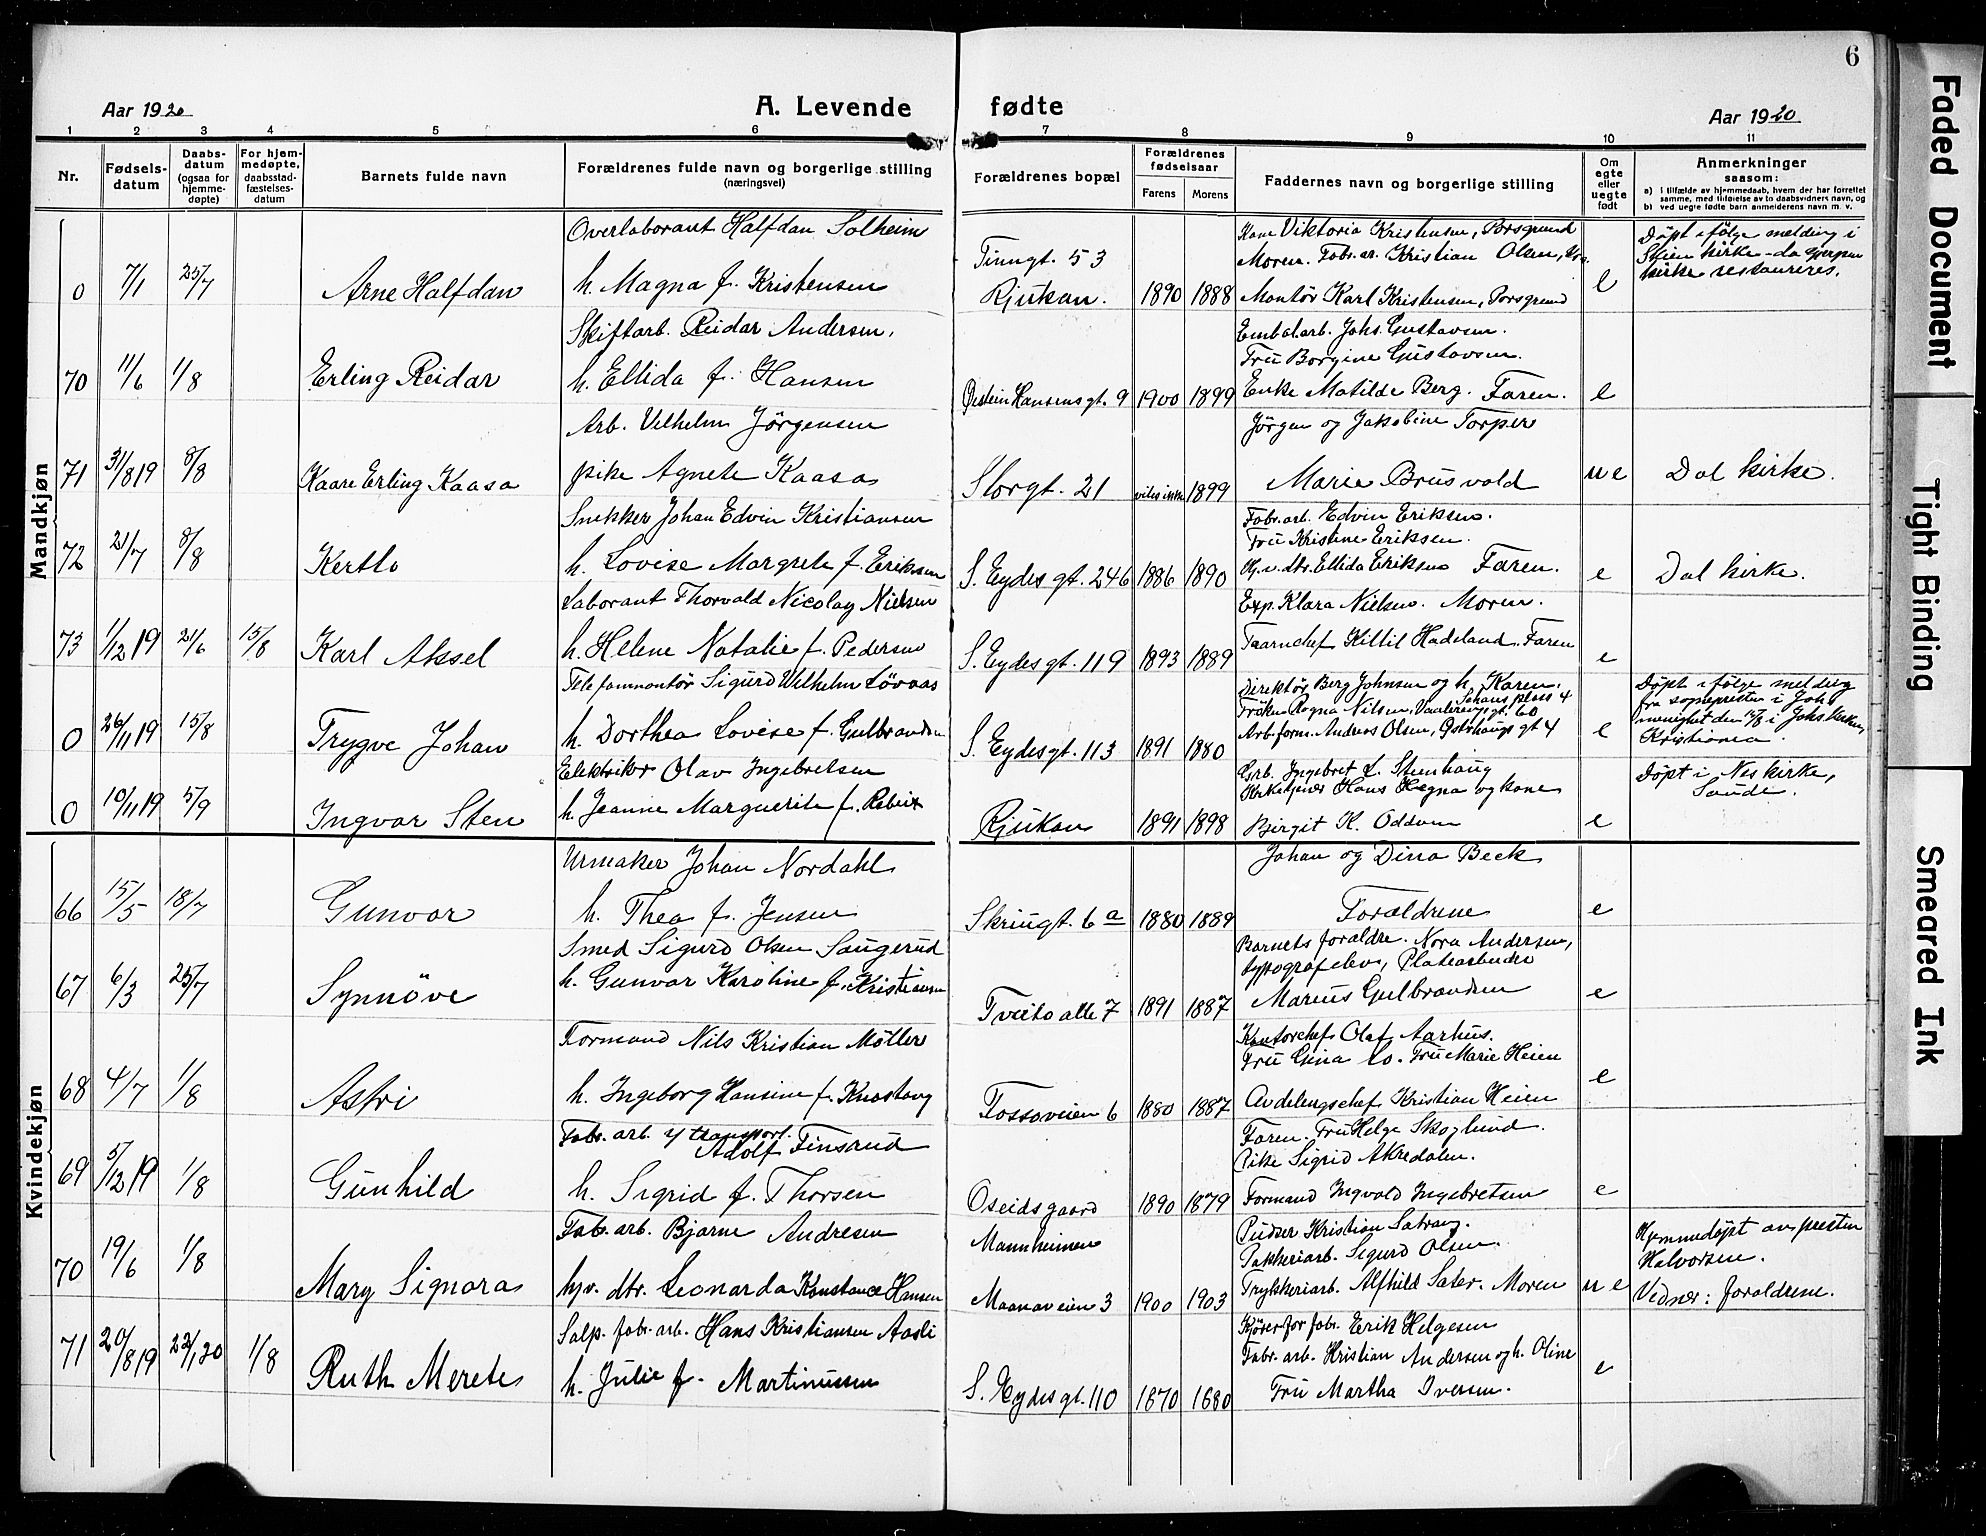 6
Aar 1920
A. Levende fødte
Aar 1920
1 2 3 4 5 6 7 8 9 10 11
Nr.
Fødsels-
datum
Daabs-
datum
(ogsaa for
hjemme-
døpte)
For hjem-
medøpte,
daabsstad-
fæstelses-
datum
Barnets fulde navn
Forældrenes fulde navn og borgerlige stilling
(næringsvei)
Forældrenes bopæl
Forældrenes
fødselsaar
Farens Morens
Faddernes navn og borgerlige stilling
Om
egte
eller
uegte
født
Anmerkninger
saasom:
a) i tilfælde av hjemmedaab, hvem der har forrettet
samme, med tilføielse av to daabsvidners navn, og
b) ved uegte fødte barn anmelderens navn m. v.
Mandkjøn
0 7/1 25/7 Arne Halfdan
Overlaborant Halfdan Solheim
h. Magna f. Kristensen
Tinngt. 53
Rjukan. 1890 1888
Kone Viktoria Kristensen, Porsgrund
Moren. Fabr. ar. Kristian Olsen,
Montør Karl Kristensen, Porsgrund
e
Döpt ifölge melding i
Skien kirke da Gjerpen
kirke restaureres.
70 11/6 1/8 Erling Reidar
Skiftarb. Reidar Andersen,
h. Ellida f. Hansen
Øistein Hansens gt. 9 1900 1899
Embal.arb. Johs. Gustavsen.
Fru Borgine Gustavsen.
Enke Matilde Berg. Faren.
e
71 31/8 19 8/8 Kaare Erling Kaasa
Arb. Vilhelm Jörgensen
pike Agnete Kaasa
Storgt. 21 vites ikke 1899
Jörgen og Jakobine Torper
Marie Brusvold
u e
Dal kirke.
72 21/7 8/8 Kertlo
Snekker Johan Edvin Kristiansen
h. Lovise Margrete f. Eriksen
S. Eydes gt. 246 1886 1890
Fabr. arb. Edvin Eriksen.
Fru Kristine Eriksen.
Ellida Eriksen Faren.
e
Dal kirke.
73 1/12 19 21/6 15/8 Karl Aksel
Laborant Thorvald Nicolay Nielsen
h. Helene Natalie f. Pedersen
S. Eydes gt. 119 1893 1889
Exp. Klara Nielsen. Moren.
Taarnchef Kittil Hadeland. Faren
e
0 26/11 19 15/8 Trygve Johan
Telefonmontör Sigurd Wilhelm Lövaas
h. Dorthea Lovise f. Gulbrandsen
S. Eydes gt. 113 1891 1880
Direktör Berg Johnsen og h. Karen.
Schous plass 4
Fröken Ragna Nilsen, Vaalerenggt. 60
Arb. form. Andreas Olsen, Østrhaugs gt 4
e
Döpt ifölge melding
fra sognepresten i Johs.
menighet den 15/8 i Johs. kirken,
Kristiania.
0 10/11 19 5/9 Ingvar Sten
Elektriker Olav Ingebretsen
h. Jeanne Marguerite f. Rebeix
Rjukan 1891 1898
Grb. Ingebret L. Steenhaug
Kirketjener Hans Hegna og kone
Birgit K. Oddven
e
Döpt i Nes kirke,
Saude.
Kvindekjøn
66 15/5 18/7 Gunvor
Urmaker Johan Nordahl
h. Thea f. Jensen
Skriugt. 6 a 1880 1889
Johan og Dina Beck
Forældrene
e
67 6/3 25/7 Synnöve
Smed Sigurd Olsen Saugerud
h. Gunvor Karoline f. Kristiansen
Tveito alle 7 1891 1887
Barnets forældre. Nora Andersen,
typografelev, Platearbeider
Marius Gulbrandsen
e
68 4/7 1/8 Astri
Formand Nils Kristian Möller
h. Ingeborg Hansine f. Knastong
Fossoveien 6 1880 1887
Kontorchef Olaf Aarhus.
Fru Gina Lo. Fru Marie Heien
Avdelingschef Kristian Heien
e
69 5/12 19 1/8 Gunhild
Fabr. arb. v/ transport.
Adolf Finsrud
h. Sigrid f. Thorsen
Oseidsgaard 1890 1879
Faren. Fru Helga Skoglund.
Pike Sigrid Akredalen.
Formand Ingvald Ingebretsen
e
70 19/6 1/8 Mary Signora
Fabr. arb. Bjarne Andresen
hjv. dtr. Leonarda Konstance Hansen
Mannheimen
Maanaveien 3 1900 1903
Pudser Kristian Satrang.
Pakkeriarb. Sigurd Olsen.
Trykkeriarb. Alfhild Sater. Moren
u e
Hjemmedöpt av presten
Halvorsen.
Vidner: forældrene.
71 20/8 19 22/1 20 1/8 Ruth Merete
Salp. fabr. arb. Hans Kristiansen Aasli
h. Julie f. Martinussen
S. Eydes gt. 110 1870 1880
Kjörer for fabr. Erik Helgesen
Fabr. arb. Kristian Andersen og h. Oline
Fru Martha Iversen.
e
Faded Document
Tight Binding
Smeared Ink